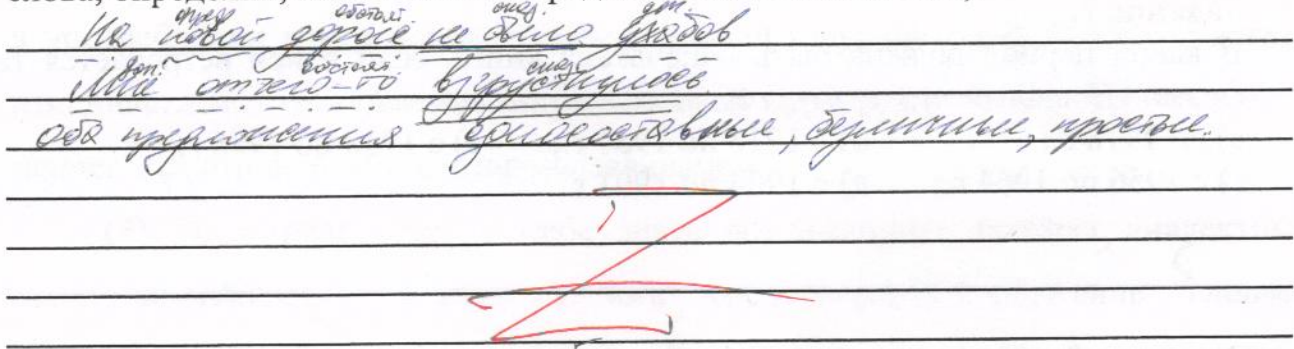 опред. обстоят. сказ. доп.
На новой дороге не было ухабов
доп. обстоят. сказ.
Мне отчего-то взгрустнулось.
оба предложения односоставные, безличные, простые.